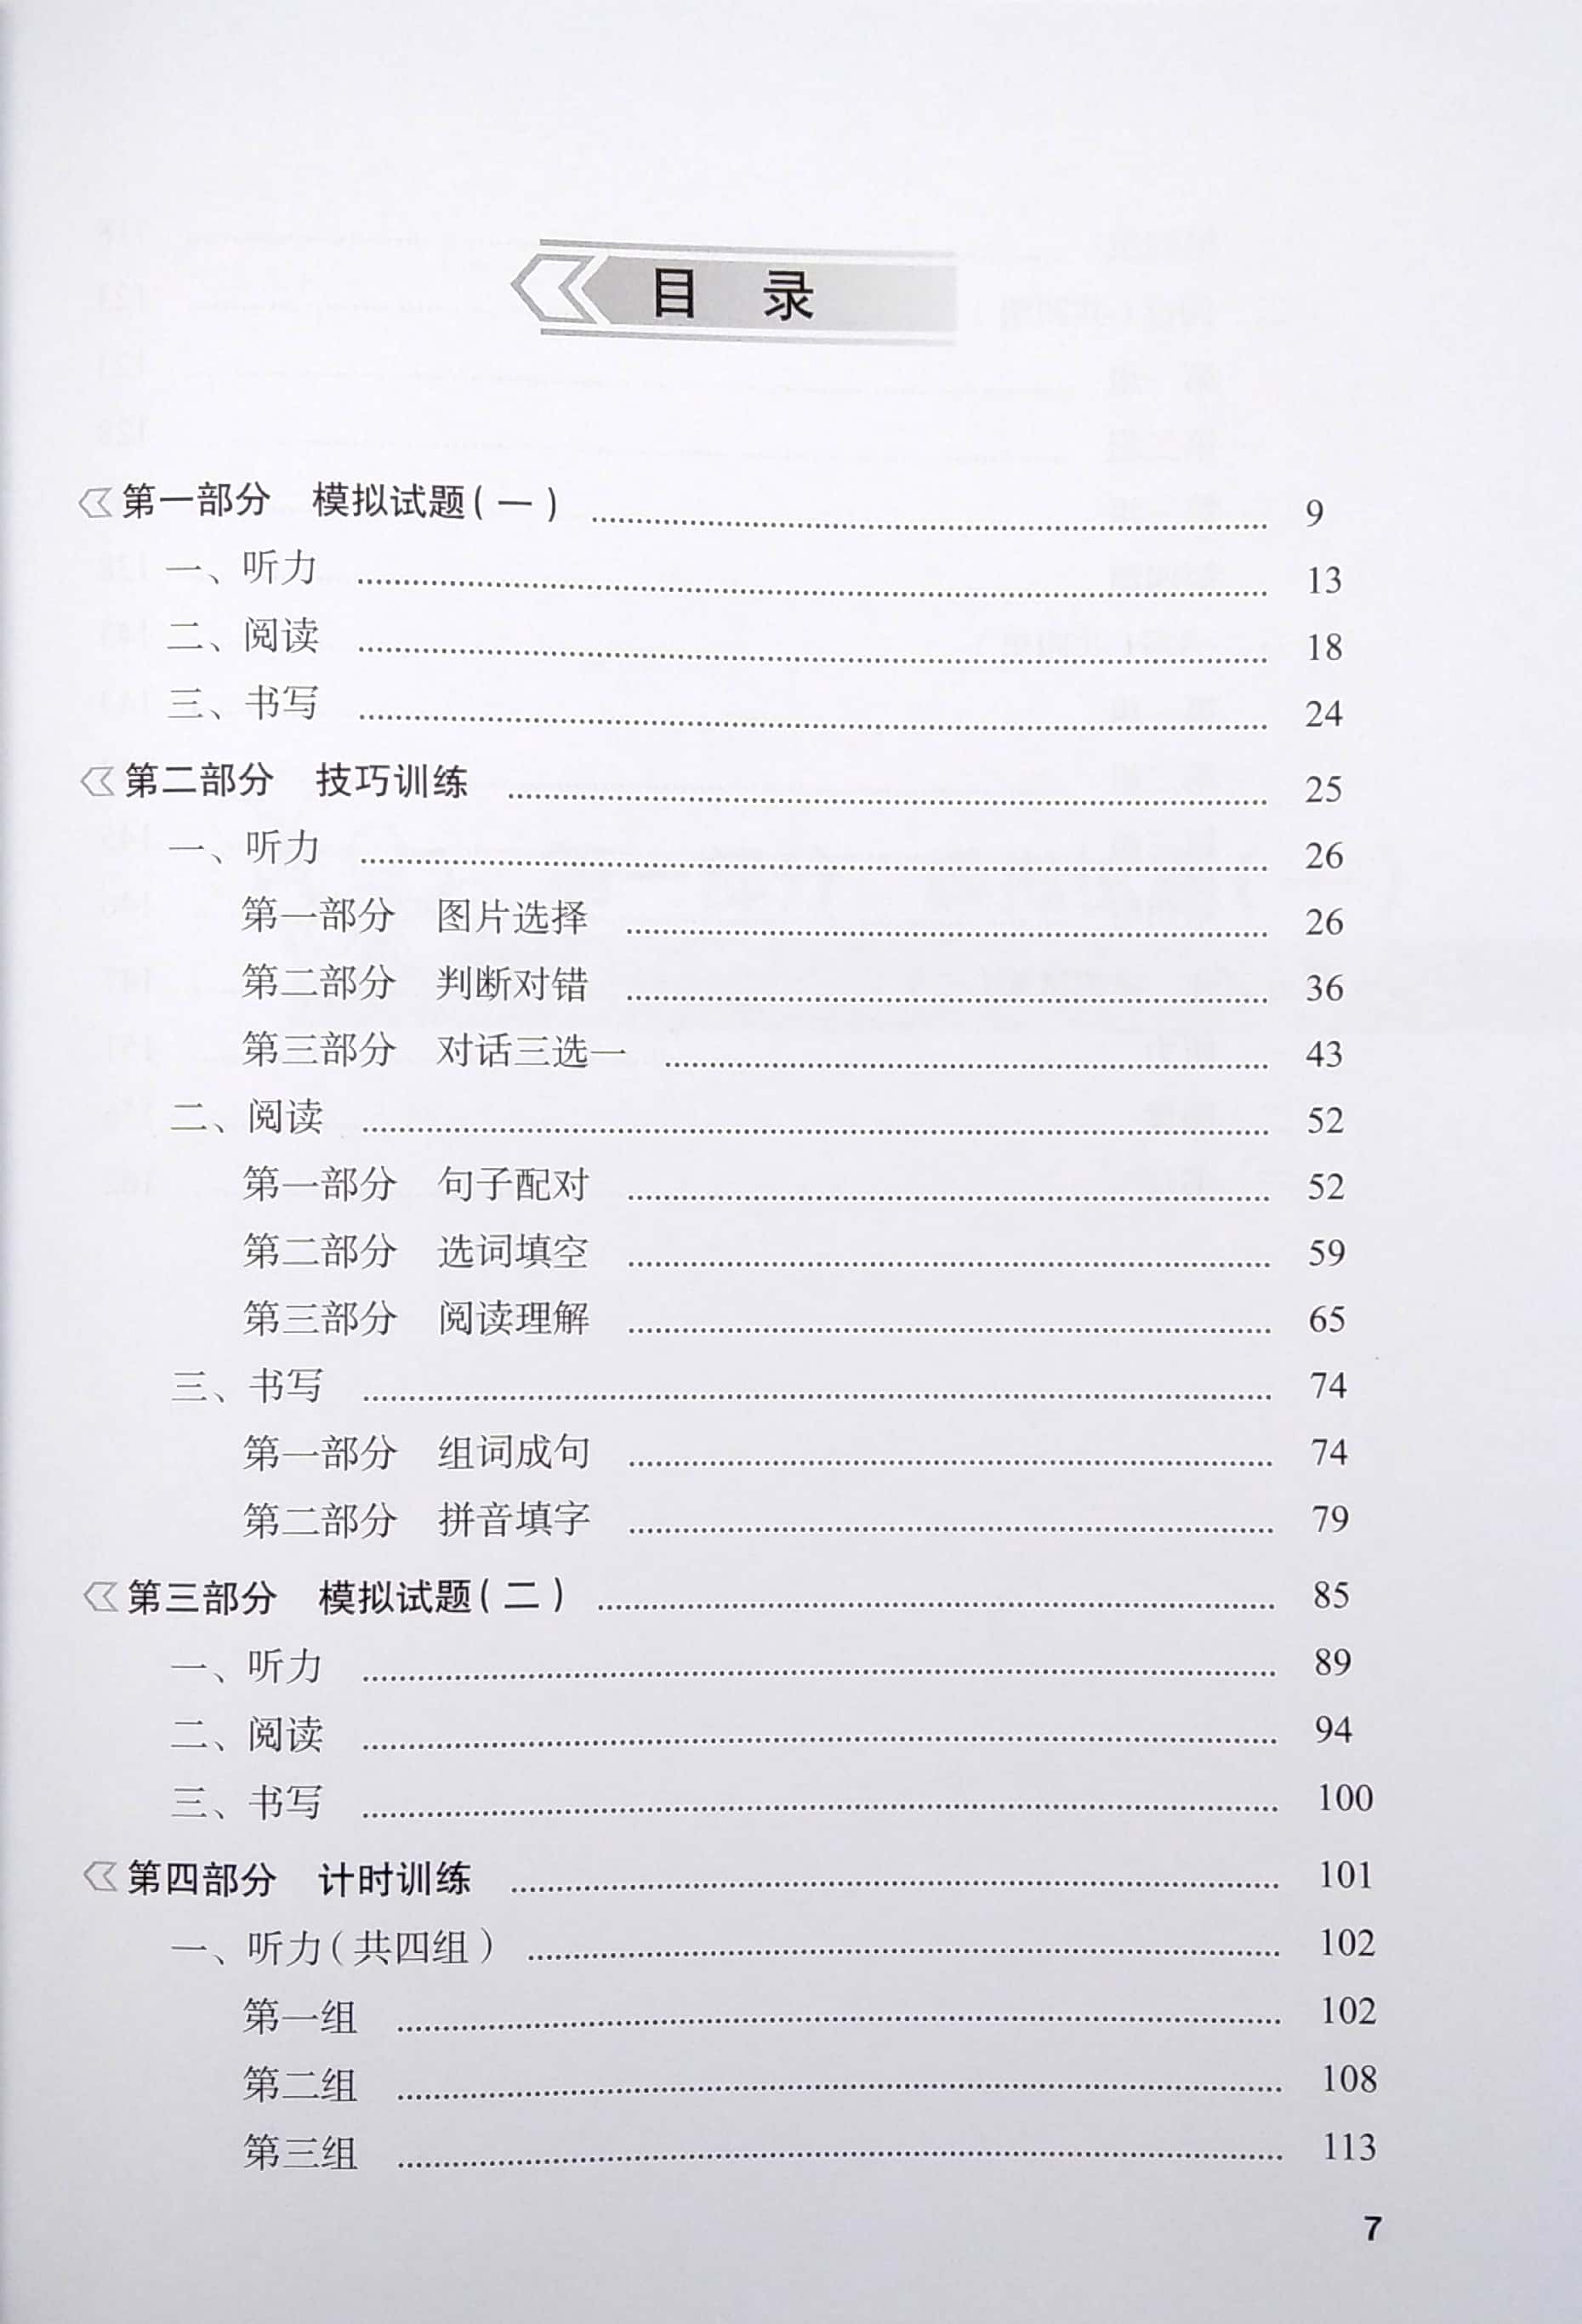 目 录
第一部分 模拟试题(一) 9
一、听力 13
二、阅读 18
三、书写 24
第二部分 技巧训练 25
一、听力 26
第一部分 图片选择 26
第二部分 判断对错 36
第三部分 对话三选一 43
二、阅读 52
第一部分 句子配对 52
第二部分 选词填空 59
第三部分 阅读理解 65
三、书写 74
第一部分 组词成句 74
第二部分 拼音填字 79
第三部分 模拟试题(二) 85
一、听力 89
二、阅读 94
三、书写 100
第四部分 计时训练 101
一、听力(共四组) 102
第一组 102
第二组 108
第三组 113
7